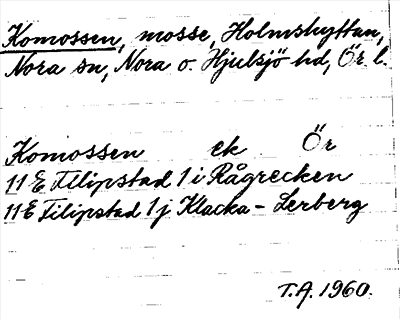 Komossen, mosse, Holmshyttan,
Nora sn, Nora o. Hjulsjö hd, Ör l.
Komossen ek Ör
11 E Filipstad 1 i Rågrecken
11 E Filipstad 1 j Klacka-Lerberg
T.A. 1960.